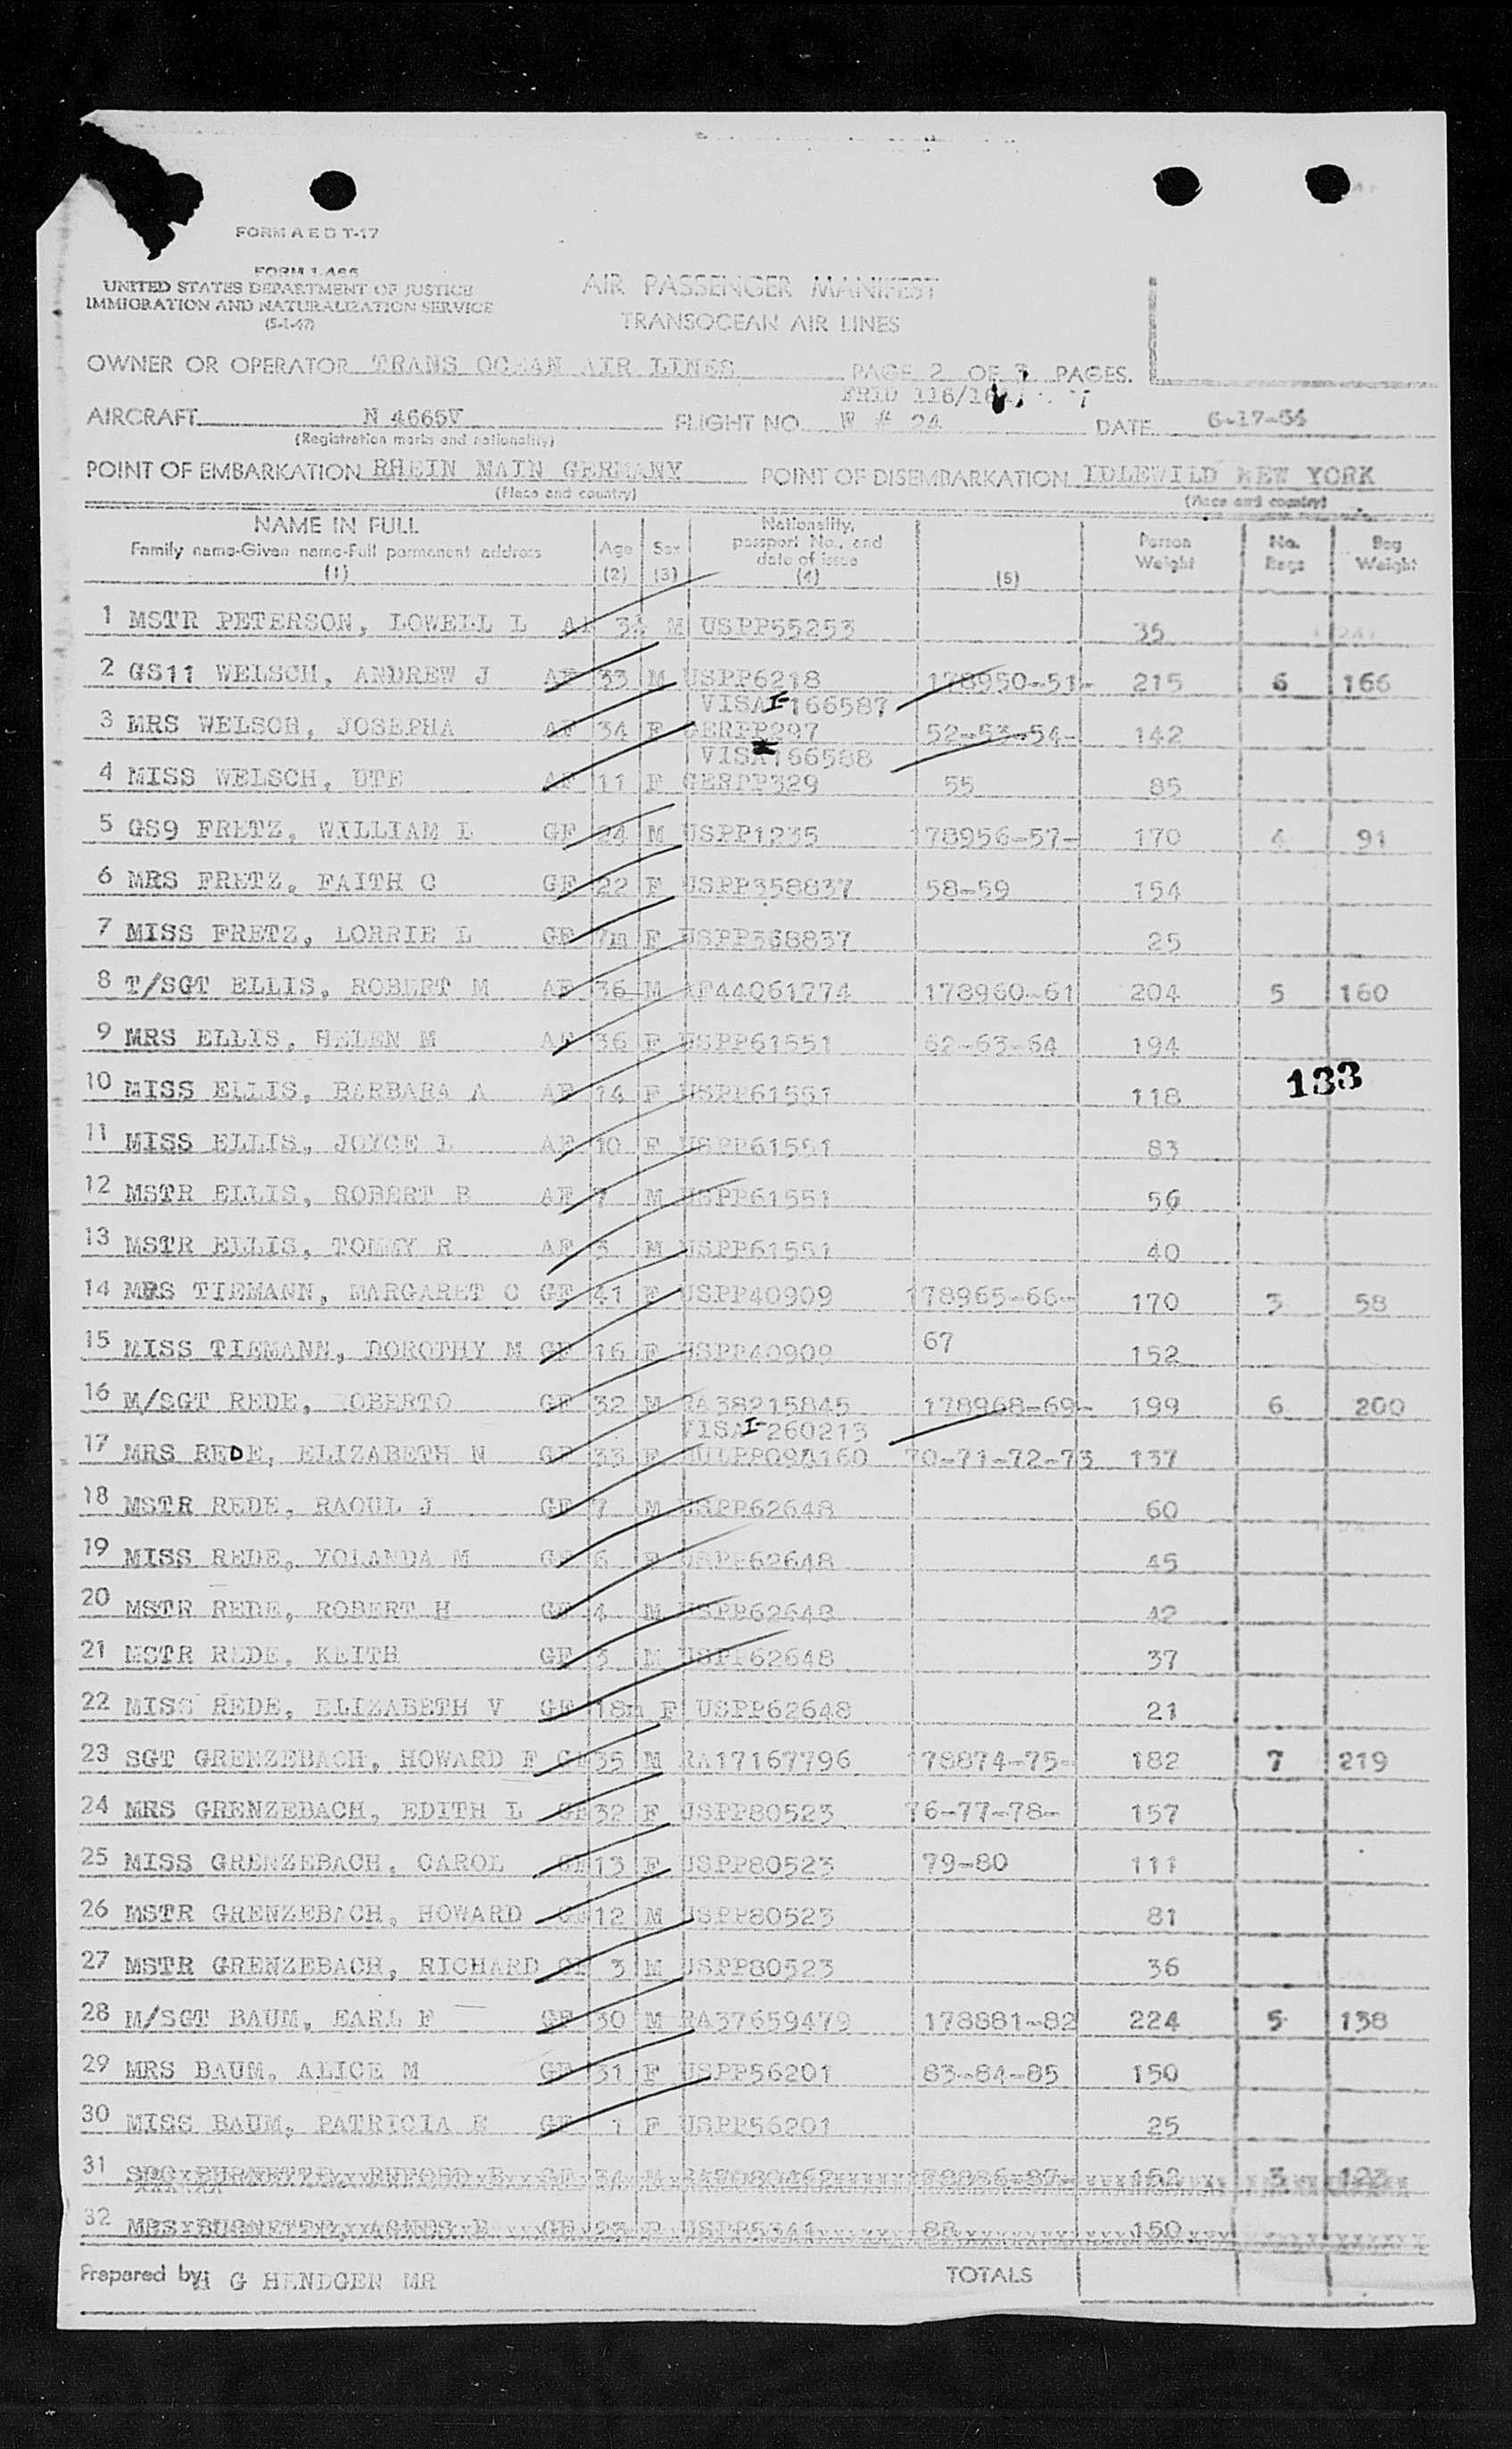 FORM A E D T-17
FORM I-466
UNITED STATES DEPARTMENT OF JUSTICE
IMMIGRATION AND NATURALIZATION SERVICE
(5-1-47)
AIR PASSENGER MANIFEST
TRANSOCEAN AIR LINES
OWNER OR OPERATOR TRANS OCEAN AIR LINES PAGE 2 OF PAGES.
AIRCRAFT N 4665V FLIGHT NO. W # 24 DATE 6-17-54
(Registration marks and nationality)
POINT OF EMBARKATION RHEIN MAIN GERMANY POINT OF DISEMBARKATION IDLEWILD NEW YORK
(Place and country) (Place and country)
NAME IN FULL Family name-Given name-Full permanent address (1) Age (2) Sex (3) Nationality, passport No., and date of issue (4) (5) Person Weight No. Bags Bag Weight
1 MSTR PETERSON, LOWELL L AF M USPP55253 35
2 GS11 WELSCH, ANDREW J AF 33 M USPP6218 178950-51- 215 6 166
VISA I-166587
3 MRS WELSCH, JOSEPHA AF 34 F GERPP297 52-53-54- 142
VISA I 166588
4 MISS WELSCH, UTE AF 11 F GERPP329 55 85
5 GS9 FRETZ, WILLIAM L GF 24 M USPP1235 178956-57- 170 4 91
6 MRS FRETZ, FAITH C GF 22 F USPP358837 58-59 154
7 MISS FRETZ, LORRIE L GF 7m F USPP368837 25
8 T/SGT ELLIS, ROBERT M AF 36 M AF44061774 178960-61 204 5 160
9 MRS ELLIS, HELEN M AF 36 F USPP61551 62-63-64 194
10 MISS ELLIS, BARBARA A AF 14 F USPP61551 118
133
11 MISS ELLIS, JOYCE L AF 10 F USPP61551 83
12 MSTR ELLIS, ROBERT B AF 7 M USPP61551 56
13 MSTR ELLIS, TOMMY R AF M USPP61551 40
14 MRS TIEMANN, MARGARET C GF 41 F USPP40909 178965-66- 170 3 58
15 MISS TIEMANN, DOROTHY M GF 16 F USPP40909 67 152
16 M/SGT REDE, ROBERTO GF 32 M RA38215845 178968-69- 199 6 200
VISA I-260213
17 MRS REDE, ELIZABETH N GF 33 F 70-71-72-73 137
18 MSTR REDE, RAOUL J GF 7 M USPP62648 60
19 MISS REDE, YOLANDA M GF 6 F USPP62648 45
20 MSTR REDE, ROBERT H GF 4 M USPP62648 42
21 MSTR REDE, KEITH GF 3 M USPP62648 37
22 MISS REDE, ELIZABETH V GF 18m F USPP62648 21
23 SGT GRENZEBACH, HOWARD F GF 35 M RA17167796 178874-75- 182 7 219
24 MRS GRENZEBACH, EDITH L GF 32 F USPP80523 76-77-78- 157
25 MISS GRENZEBACH, CAROL GF 13 F USPP80523 79-80 111
26 MSTR GRENZEBACH, HOWARD GF 12 M USPP80523 81
27 MSTR GRENZEBACH, RICHARD GF 3 M USPP80523 36
28 M/SGT BAUM, EARL F GF 30 M RA37659479 178881-82 224 5 138
29 MRS BAUM, ALICE M GF 31 F USPP56201 83-84-85 150
30 MISS BAUM, PATRICIA E GF 1 F USPP56201 25
31 GF 34 M 3 123
32 MRS GF 23 F USPP5341 88 150
Prepared by: G HENDGEN MR TOTALS